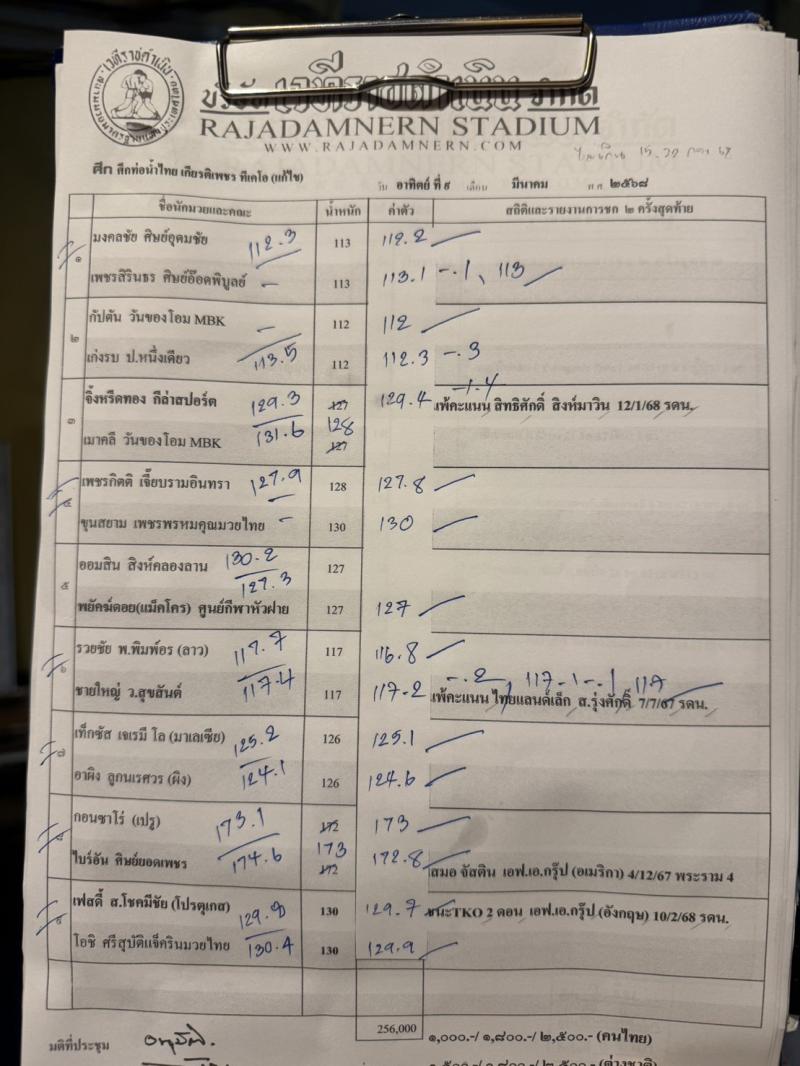 บริษัท เวทีราชดำเนิน จำกัด
RAJADAMNERN STADIUM
WWW.RAJADAMNERN.COM
ศึก ศึกท่อน้ำไทย เกียรติเพชร ทีเคโอ (แก้ไข) วัน อาทิตย์ ที่ ๙ เดือน มีนาคม พ ศ ๒๕๖๘
ชื่อนักมวยและคณะ น้ำหนัก ค่าตัว สถิติและรายงานการชก ๒ ครั้งสุดท้าย
๑ มงคลชัย ศิษย์อุดมชัย 112.3 113 112.2
เพชรสิรินธร ศิษย์อ๊อดพิบูลย์ - 113 113.1 -.1, 113
๒ กัปตัน วันของโอม MBK - 112 112
เก่งรบ ป.หนึ่งเดียว 113.5 112 112.3 -.3
๓ จิ้งหรีดทอง กีล่าสปอร์ต 129.3 127 129.4 -1.4 แพ้คะแนน สิทธิศักดิ์ สิงห์มาวิน 12/1/68 รดน.
128
เมาคลี วันของโอม MBK 131.6 127
๔ เพชรกิตติ เจี๊ยบรามอินทรา 127.9 128 127.8
ขุนสยาม เพชรพรหมคุณมวยไทย - 130 130
๕ ออมสิน สิงห์คลองลาน 130.2 127
พยัคฆ์ดอย(แม็คโคร) ศูนย์กีฬาหัวฝาย 127.3 127 127
๖ รวยชัย พ.พิมพ์อร (ลาว) 117.7 117 116.8
-.2, 117.1 -.1, 117
ชายใหญ่ ว.สุขสันต์ 117.4 117 117.2 แพ้คะแนน ไทยแลนด์เล็ก ส.รุ่งศักดิ์ 7/7/67 รดน.
๗ เท็กซัส เจเรมี โล (มาเลเซีย) 125.2 126 125.1
อาผิง ลูกนเรศวร (ผิง) 124.1 126 124.6
๘ กอนซาโร่ (เปรู) 173.1 172 173
173
ไบร์อัน ศิษย์ยอดเพชร 174.6 172 172.8 เสมอ จัสติน เอฟ.เอ.กรุ๊ป (อเมริกา) 4/12/67 พระราม 4
๙ เฟสดี้ ส.โชคมีชัย (โปรตุเกส) 129.9 130 129.7 ชนะTKO 2 ดอน เอฟ.เอ.กรุ๊ป (อังกฤษ) 10/2/68 รดน.
โอชิ ศรีสุบัติแจ็ครินมวยไทย 130.4 130 129.9
256,000
มติที่ประชุม อนุมัติ. ๑,๐๐๐.-/ ๑,๘๐๐.-/ ๒,๕๐๐.- (คนไทย)
๑,๕๐๐.-/ ๑,๘๐๐.-/ ๒,๕๐๐.- (ต่างชาติ)